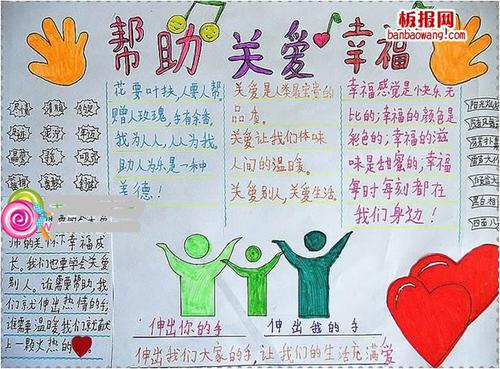 板报网
banbaowang.com
帮助 关爱 幸福
花要叶扶,人要人帮
赠人玫瑰,手有余香
我为人人,人人为我。
助人为乐是一种
美德!
关爱是人类最宝贵的
品质。
关爱让我们体味
人间的温暖。
关爱别人,关爱生活
幸福感觉是快乐无
比的;幸福的颜色是
彩色的;幸福的滋
味是甜蜜的;幸福
每时每刻都在
我们身边!
师的关怀下幸福成
长。我们也要学会关爱
别人,谁需要帮助,我
们就伸出热情的手
谁需要温暖我们就献
上一颗火热的
伸出你的手 伸出我的手
伸出我们大家的手,让我们的生活充满爱